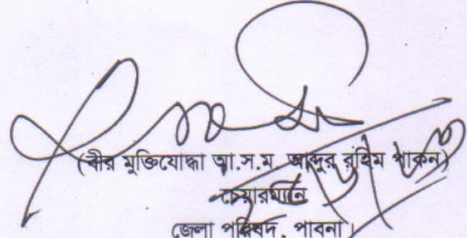 (বীর মুক্তিযোদ্ধা আ.স.ম. আব্দুর রহিম পাকন)
চেয়ারম্যান
জেলা পরিষদ, পাবনা।